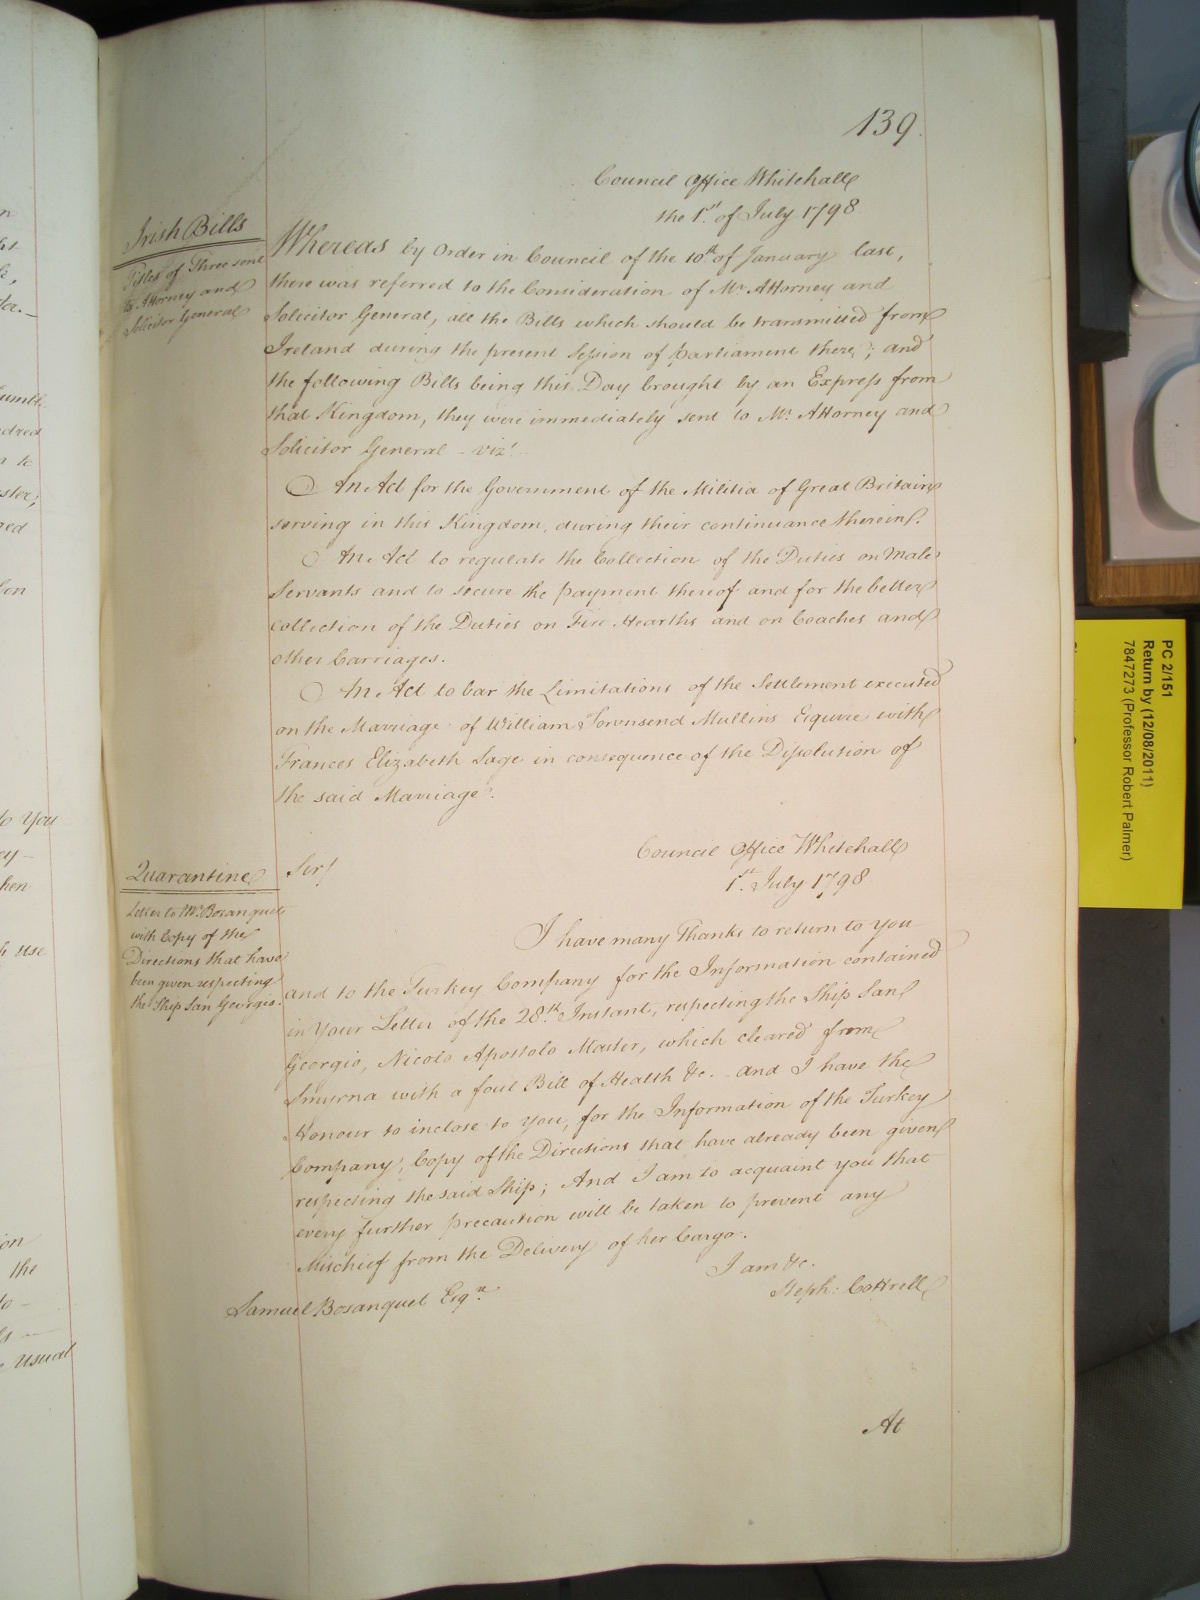 139.
Council Office Whitehall
the 1st. of July 1798
Irish Bills
Titles of Three sent
to Attorney and
Solicitor General
Whereas by Order in Council of the 10th. of January last,
there was referred to the Consideration of Mr. Attorney and
Solicitor General, all the Bills which should be transmitted from
Ireland during the present Session of Parliament there; and
the following Bills being this Day brought by an Express from
that Kingdom, they were immediately sent to Mr. Attorney and
Solicitor General - vizt.
An Act for the Government of the Militia of Great Britain
serving in this Kingdom, during their continuance therein.
An Act to regulate the Collection of the Duties on Male
Servants and to secure the payment thereof and for the better
collection of the Duties on Fire Hearths and on Coaches and
other Carriages.
An Act to bar the Limitations of the Settlement executed
on the Marriage of William Townsend Mullins Esquire with
Frances Elizabeth Sage in consequence of the Dissolution of
the said Marriage.
Council Office Whitehall
1st. July 1798
Quarantine
Letter to Mr. Bosanquet
with Copy of the
Directions that have
been given respecting
the Ship San Georgio.
Sir!
I have many Thanks to return to you
and to the Turkey Company for the Information contained
in Your Letter of the 28th. Instant, respecting the Ship San
Georgio, Nicolo Apostolo Master, which cleared from
Smyrna with a foul Bill of Health &c. - and I have the
Honour to inclose to you, for the Information of the Turkey
Company, Copy of the Directions that have already been given
respecting the said Ship; And I am to acquaint you that
every further precaution will be taken to prevent any
Mischief from the Delivery of her Cargo.
I am &c.
Steph: Cottrell
Samuel Bosanquet Esqre.
At
PC 2/151
Return by (12/08/2011)
7847273 (Professor Robert Palmer)